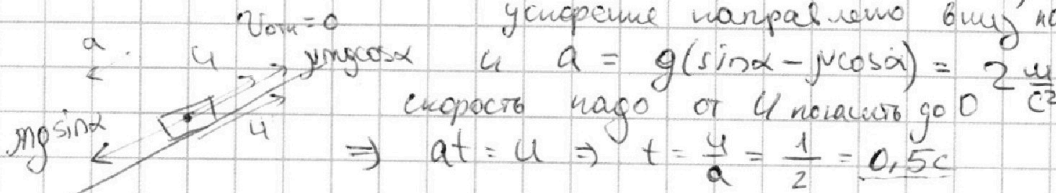 Vотн=0
ускорение направлено вниз
a
u
μmgcosα
и a = g(sinα-μcosα) = 2 м/с²
скорость надо от u погасить до 0
mgsinα
u
⇒ at = u ⇒ t = u/a = 1/2 = 0,5с